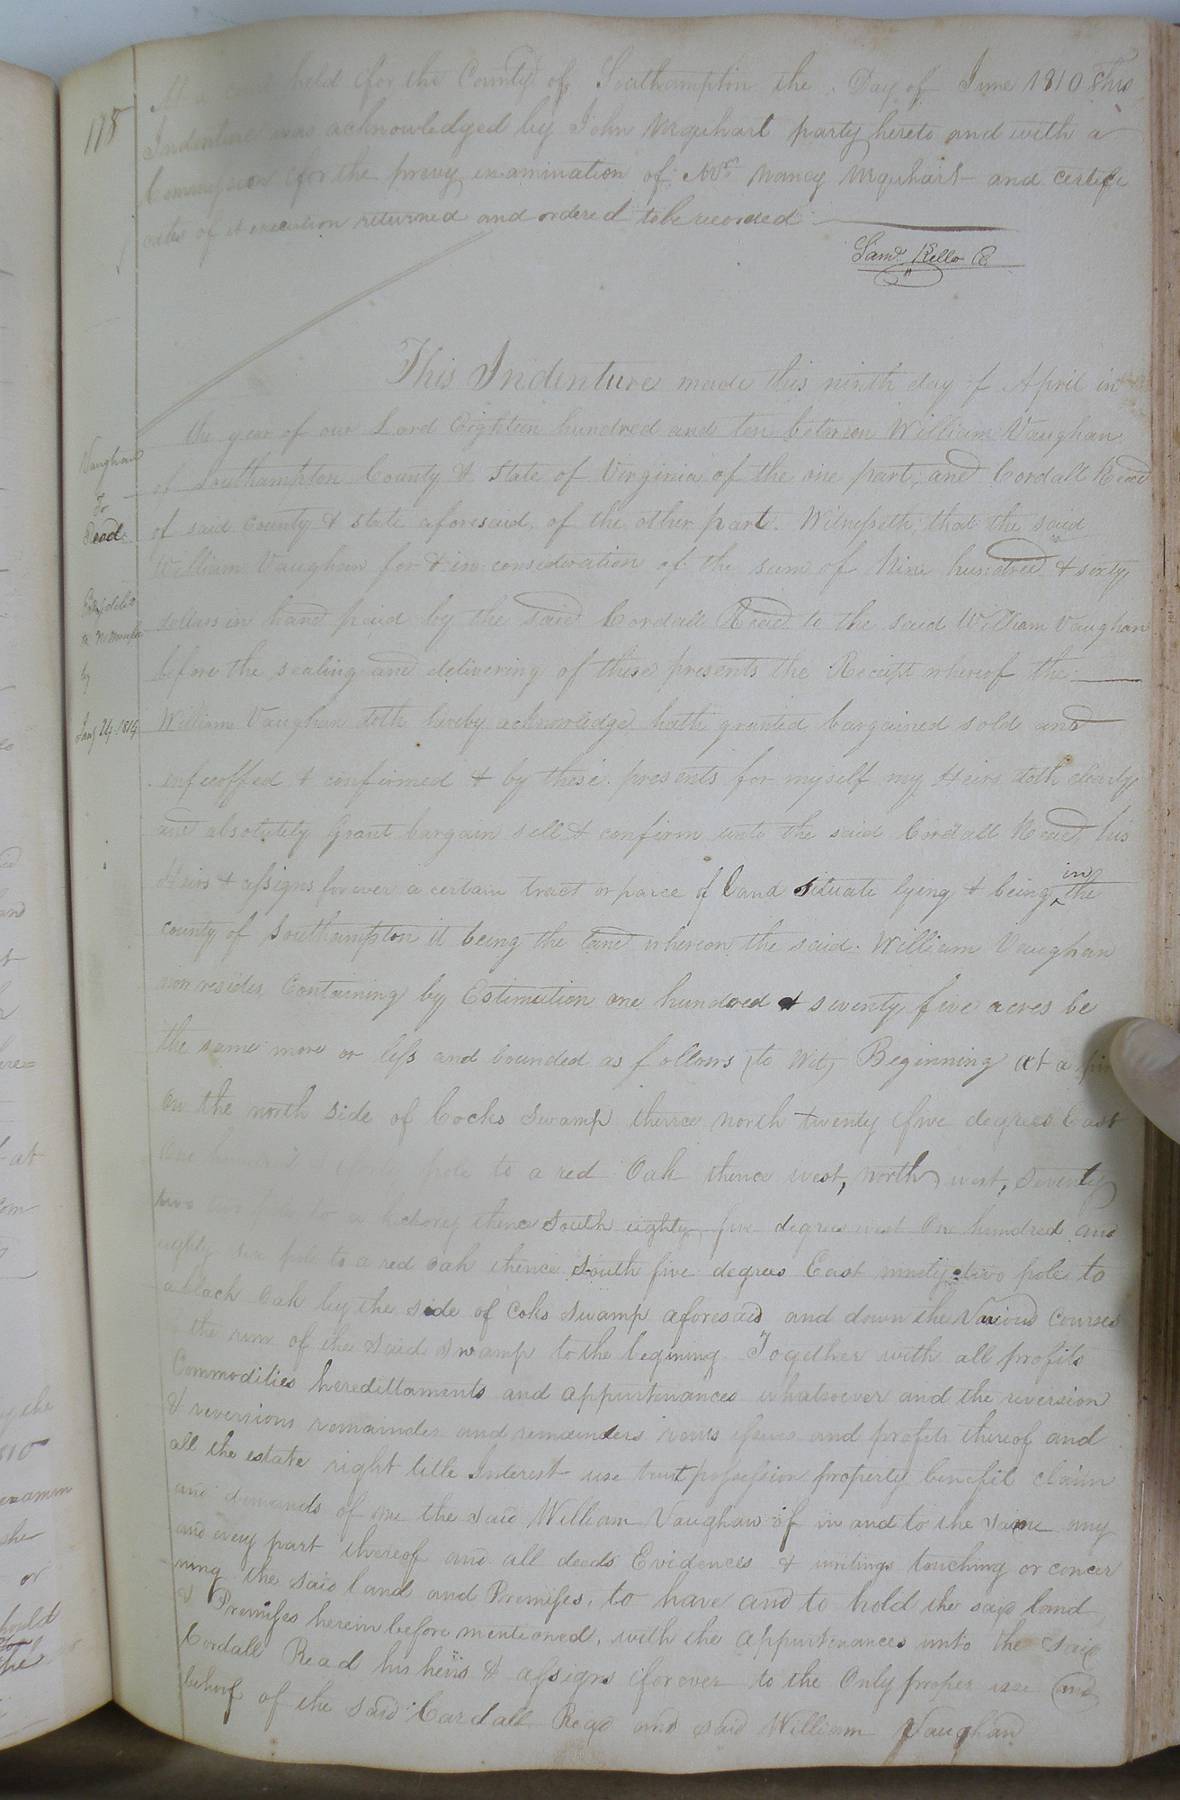 178
At a court held for the County of Southampton the Day of June 1810 This
Indenture was acknowledged by John Urquhart party hereto and with a
Commission for the privy examination of Mrs Nancy Urquhart and certifi
cates of it execution returned and ordered to be recorded
Saml. Kello C
This Indenture made this ninth day of April in
the year of our Lord Eighteen hundred and ten between William Vaughan
of Southampton County & State of Virginia of the one part, and Cordall Read
of said County & State aforesaid, of the other part. Witnesseth, that the said
William Vaughan for & in consideration of the sum of Nine hundred & sixty
dollars in hand paid by the said Cordall Read to the said William Vaughan
before the sealing and delivering of these presents the Receipt whereof the
William Vaughan doth hereby acknowledge hath granted bargained sold and
enfeoffed & confirmed & by these presents for myself my Heirs doth clearly
and absolutely Grant bargain sell & confirm unto the said Cordall Read his
Heirs & assigns forever a certain tract or parce of land situate lying & being in the
county of Southampton it being the land whereon the said William Vaughan
now resides, Containing by Estimation one hundred & seventy five acres be
the same more or less and bounded as follows (to wit, Beginning at a
on the north side of Cocks Swamp thence north twenty five degrees East
One hundred pole to a red Oak thence west, north west, seventy
two pole to a hickory thence South eighty five degrees west One hundred and
eighty six pole to a red oak thence South five degrees East ninety two pole to
a black Oak by the side of Coks Swamp aforesaid and down the Various Courses
the run of the Said Swamp to the begining Together with all profits
Commodities heredittaments and appurtenances whatsoever and the reversion
& reversions remainder and remainders rents issues and profits thereof and
all the estate right title Interest use trust possession property benefit claim
and demands of me the said William Vaughan of in and to the same any
and every part thereof and all deeds Evidences & writings touching or concer
ning the said land and Premises, to have and to hold the said land
& Premises herein before mentioned, with the appurtenances unto the said
Cordall Read his heirs & assigns forever to the Only proper use and
behoof of the said Cardall Read and said William Vaughan
Vaughan
To
Read
by